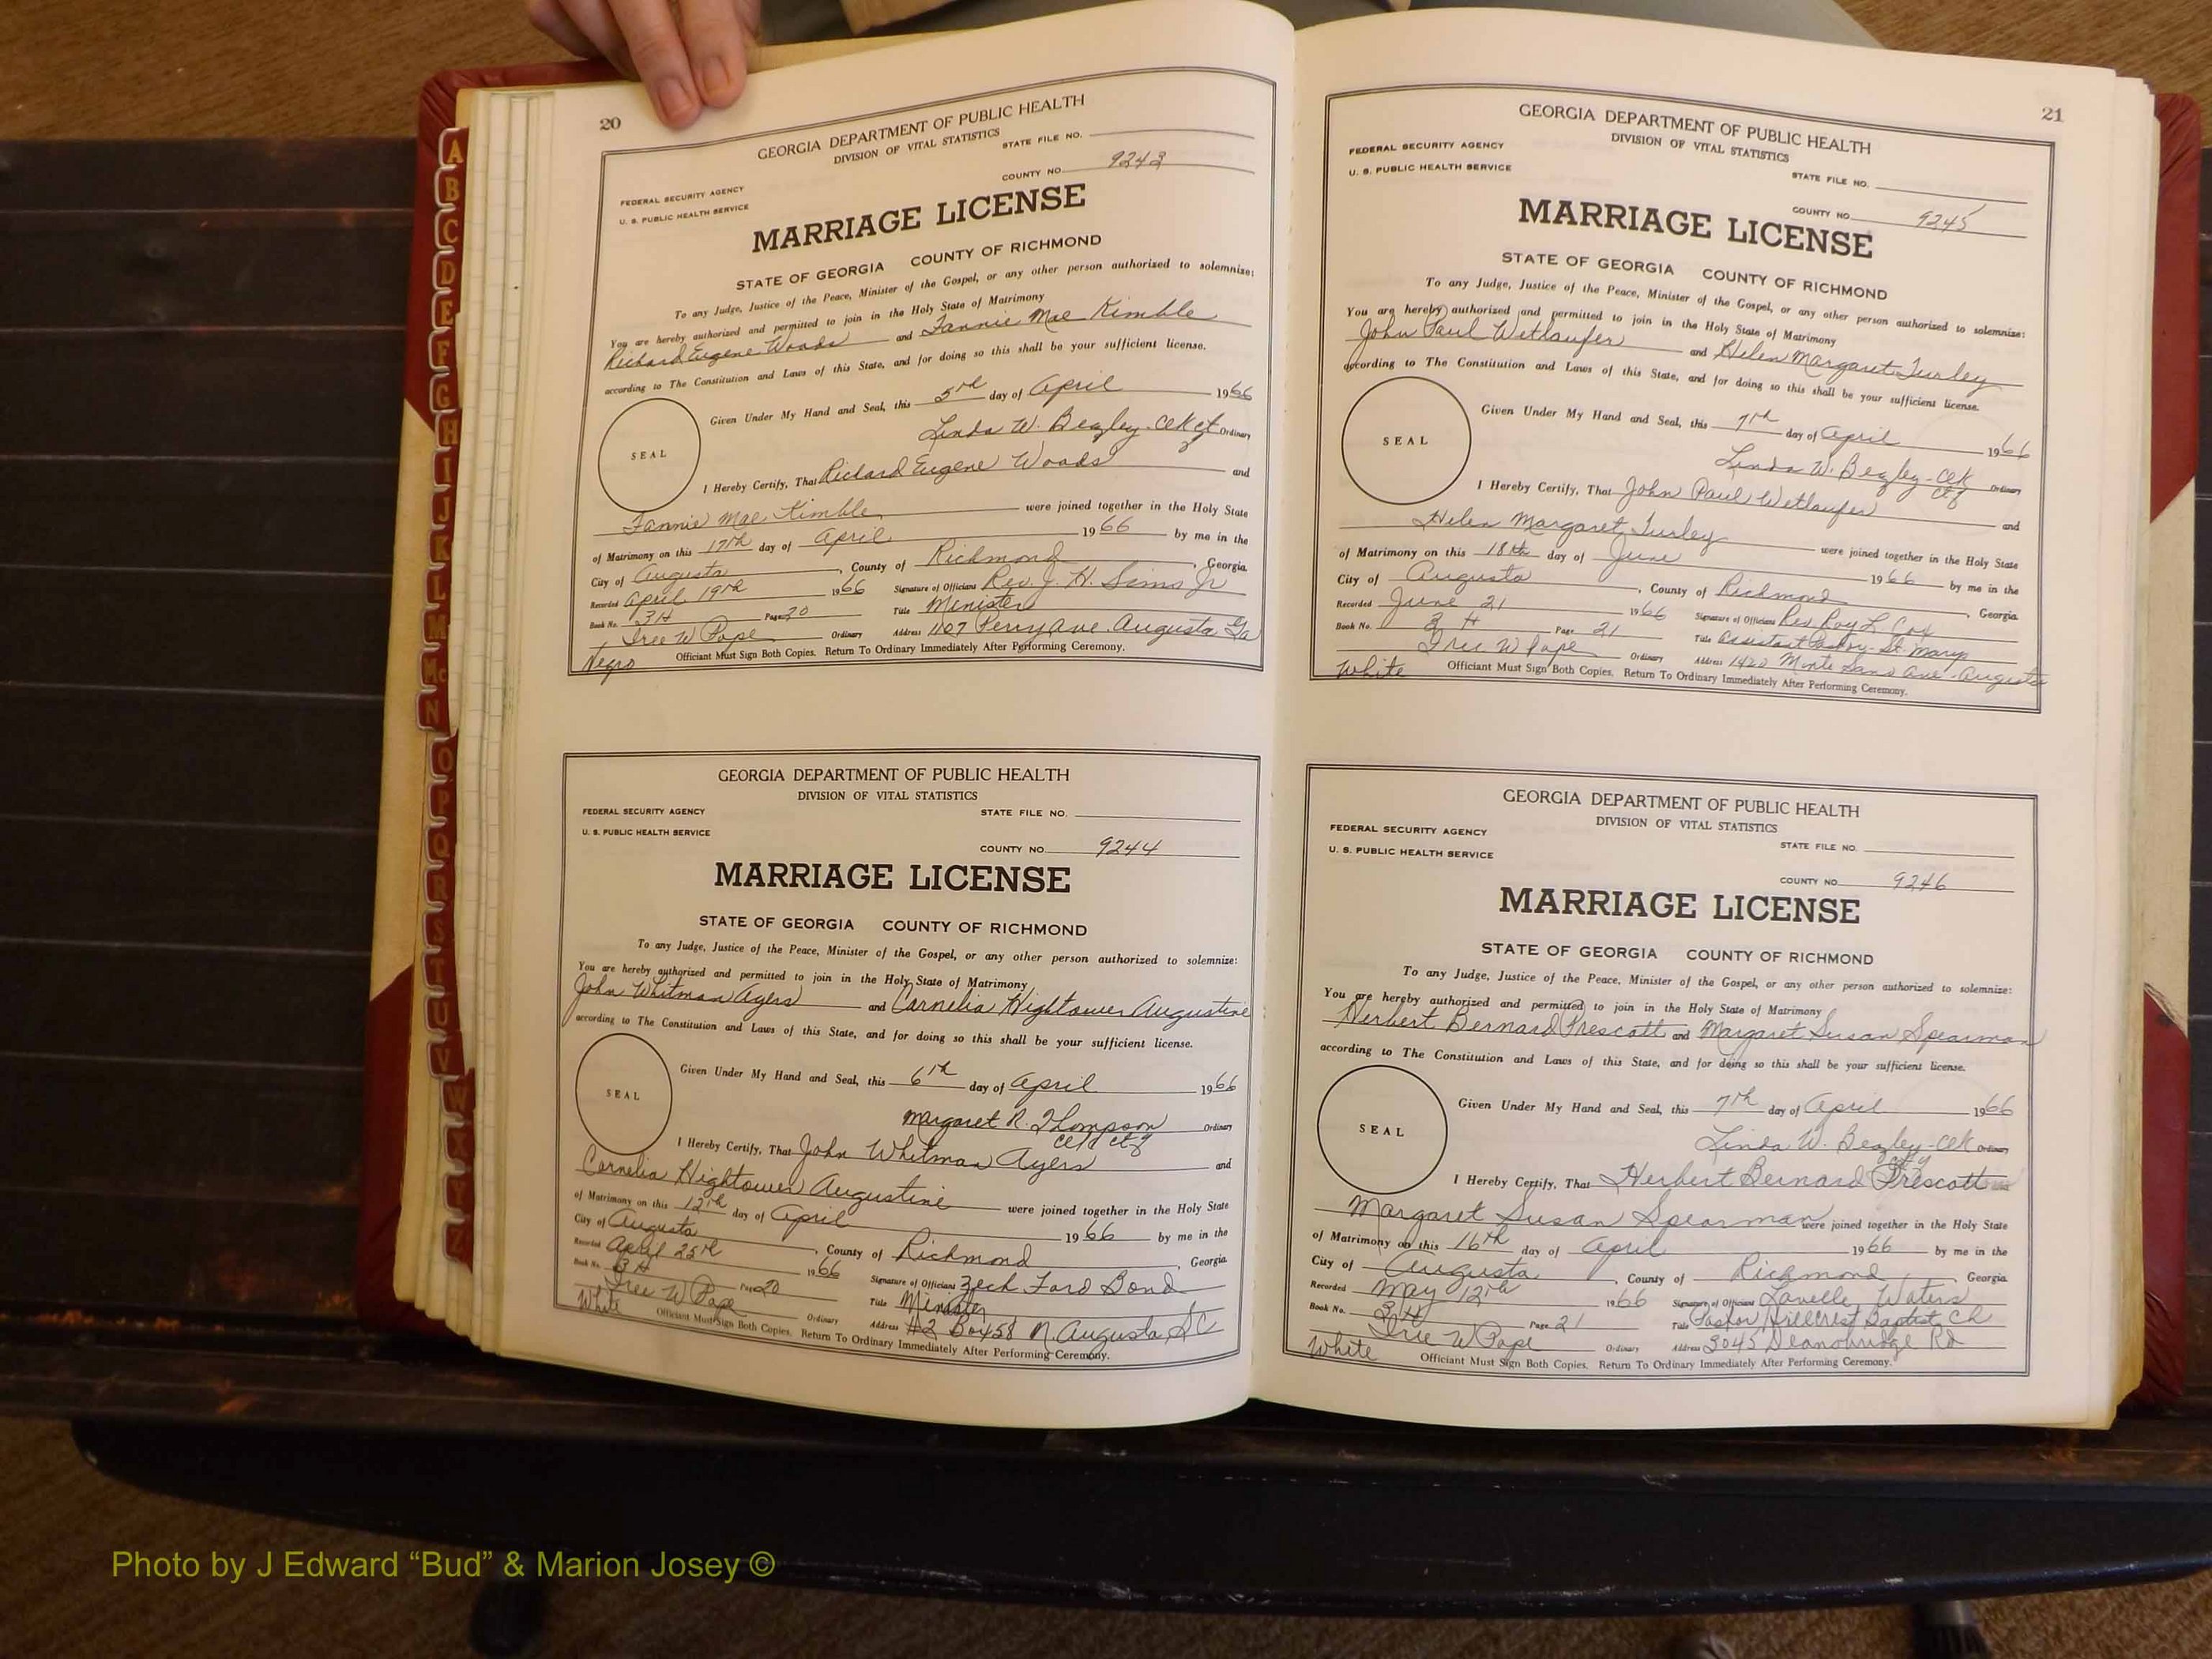 20
GEORGIA DEPARTMENT OF PUBLIC HEALTH
DIVISION OF VITAL STATISTICS
STATE FILE NO.
COUNTY NO. 9243
FEDERAL SECURITY AGENCY
U. S. PUBLIC HEALTH SERVICE
MARRIAGE LICENSE
STATE OF GEORGIA COUNTY OF RICHMOND
To any Judge, Justice of the Peace, Minister of the Gospel, or any other person authorized to solemnize:
You are hereby authorized and permitted to join in the Holy State of Matrimony
Richard Eugene Woods and Fannie Mae Kimble
according to The Constitution and Laws of this State, and for doing so this shall be your sufficient license.
SEAL
Given Under My Hand and Seal, this 5th day of April 1966
Linda W. Beazley - Clk Ordinary
I Hereby Certify, That Richard Eugene Woods and
Fannie Mae Kimble were joined together in the Holy State
of Matrimony on this 17th day of April 1966 by me in the
City of Augusta, County of Richmond, Georgia.
Recorded April 19th 1966 Signature of Officiant Rev. J. H. Sims Jr
Book No. 3H Page 20 Title Minister
Iree W Pope Ordinary Address 1107 Perry Ave. Augusta Ga
Negro Officiant Must Sign Both Copies. Return To Ordinary Immediately After Performing Ceremony.
GEORGIA DEPARTMENT OF PUBLIC HEALTH
DIVISION OF VITAL STATISTICS
FEDERAL SECURITY AGENCY STATE FILE NO.
U. S. PUBLIC HEALTH SERVICE
COUNTY NO. 9244
MARRIAGE LICENSE
STATE OF GEORGIA COUNTY OF RICHMOND
To any Judge, Justice of the Peace, Minister of the Gospel, or any other person authorized to solemnize:
You are hereby authorized and permitted to join in the Holy State of Matrimony
John Whitman Ayers and Cornelia Hightower Augustine
according to The Constitution and Laws of this State, and for doing so this shall be your sufficient license.
SEAL
Given Under My Hand and Seal, this 6th day of April 1966
Margaret R. Thompson Ordinary
I Hereby Certify, That John Whitman Ayers and
Cornelia Hightower Augustine were joined together in the Holy State
of Matrimony on this 12th day of April 1966 by me in the
City of Augusta, County of Richmond, Georgia
Recorded April 25th 1966 Signature of Officiant Zech Ford Bond
Book No. 3H Page 20 Title Minister
Iree W Pope Ordinary Address #2 Box 458 N. Augusta SC
White Officiant Must Sign Both Copies. Return To Ordinary Immediately After Performing Ceremony.
21
GEORGIA DEPARTMENT OF PUBLIC HEALTH
DIVISION OF VITAL STATISTICS
FEDERAL SECURITY AGENCY
U. S. PUBLIC HEALTH SERVICE
STATE FILE NO.
COUNTY NO. 9245
MARRIAGE LICENSE
STATE OF GEORGIA COUNTY OF RICHMOND
To any Judge, Justice of the Peace, Minister of the Gospel, or any other person authorized to solemnize:
You are hereby authorized and permitted to join in the Holy State of Matrimony
John Paul Wetlaufer and Helen Margaret Turley
according to The Constitution and Laws of this State, and for doing so this shall be your sufficient license.
SEAL
Given Under My Hand and Seal, this 7th day of April 1966
Linda W. Beazley - Clk Ordinary
I Hereby Certify, That John Paul Wetlaufer and
Helen Margaret Turley were joined together in the Holy State
of Matrimony on this 18th day of June 1966 by me in the
City of Augusta, County of Richmond, Georgia
Recorded June 21 1966 Signature of Officiant Rev Roy L Cox
Book No. 3 H Page 21 Title Assistant Pastor - St. Marys
Iree W Pope Ordinary Address 1420 Monte Sano Ave - Augusta
White Officiant Must Sign Both Copies. Return To Ordinary Immediately After Performing Ceremony.
GEORGIA DEPARTMENT OF PUBLIC HEALTH
DIVISION OF VITAL STATISTICS
FEDERAL SECURITY AGENCY
U. S. PUBLIC HEALTH SERVICE
STATE FILE NO.
COUNTY NO. 9246
MARRIAGE LICENSE
STATE OF GEORGIA COUNTY OF RICHMOND
To any Judge, Justice of the Peace, Minister of the Gospel, or any other person authorized to solemnize:
You are hereby authorized and permitted to join in the Holy State of Matrimony
Herbert Bernard Prescott and Margaret Susan Spearman
according to The Constitution and Laws of this State, and for doing so this shall be your sufficient license.
SEAL
Given Under My Hand and Seal, this 7th day of April 1966
Linda W. Beazley - Clk Ordinary
I Hereby Certify, That Herbert Bernard Prescott and
Margaret Susan Spearman were joined together in the Holy State
of Matrimony on this 16th day of April 1966 by me in the
City of Augusta, County of Richmond, Georgia
Recorded May 12th 1966 Signature of Officiant Lavelle Waters
Book No. 3H Page 21 Title Pastor Hillcrest Baptist Ch
Iree W Pope Ordinary Address 3045 Deansbridge Rd
White Officiant Must Sign Both Copies. Return To Ordinary Immediately After Performing Ceremony.
A
B
C
D
E
F
G
H
I
J
K
L
M
Mc
N
O
P
Q
R
S
T
U
V
W
X
Y
Z
Photo by J Edward “Bud” & Marion Josey ©